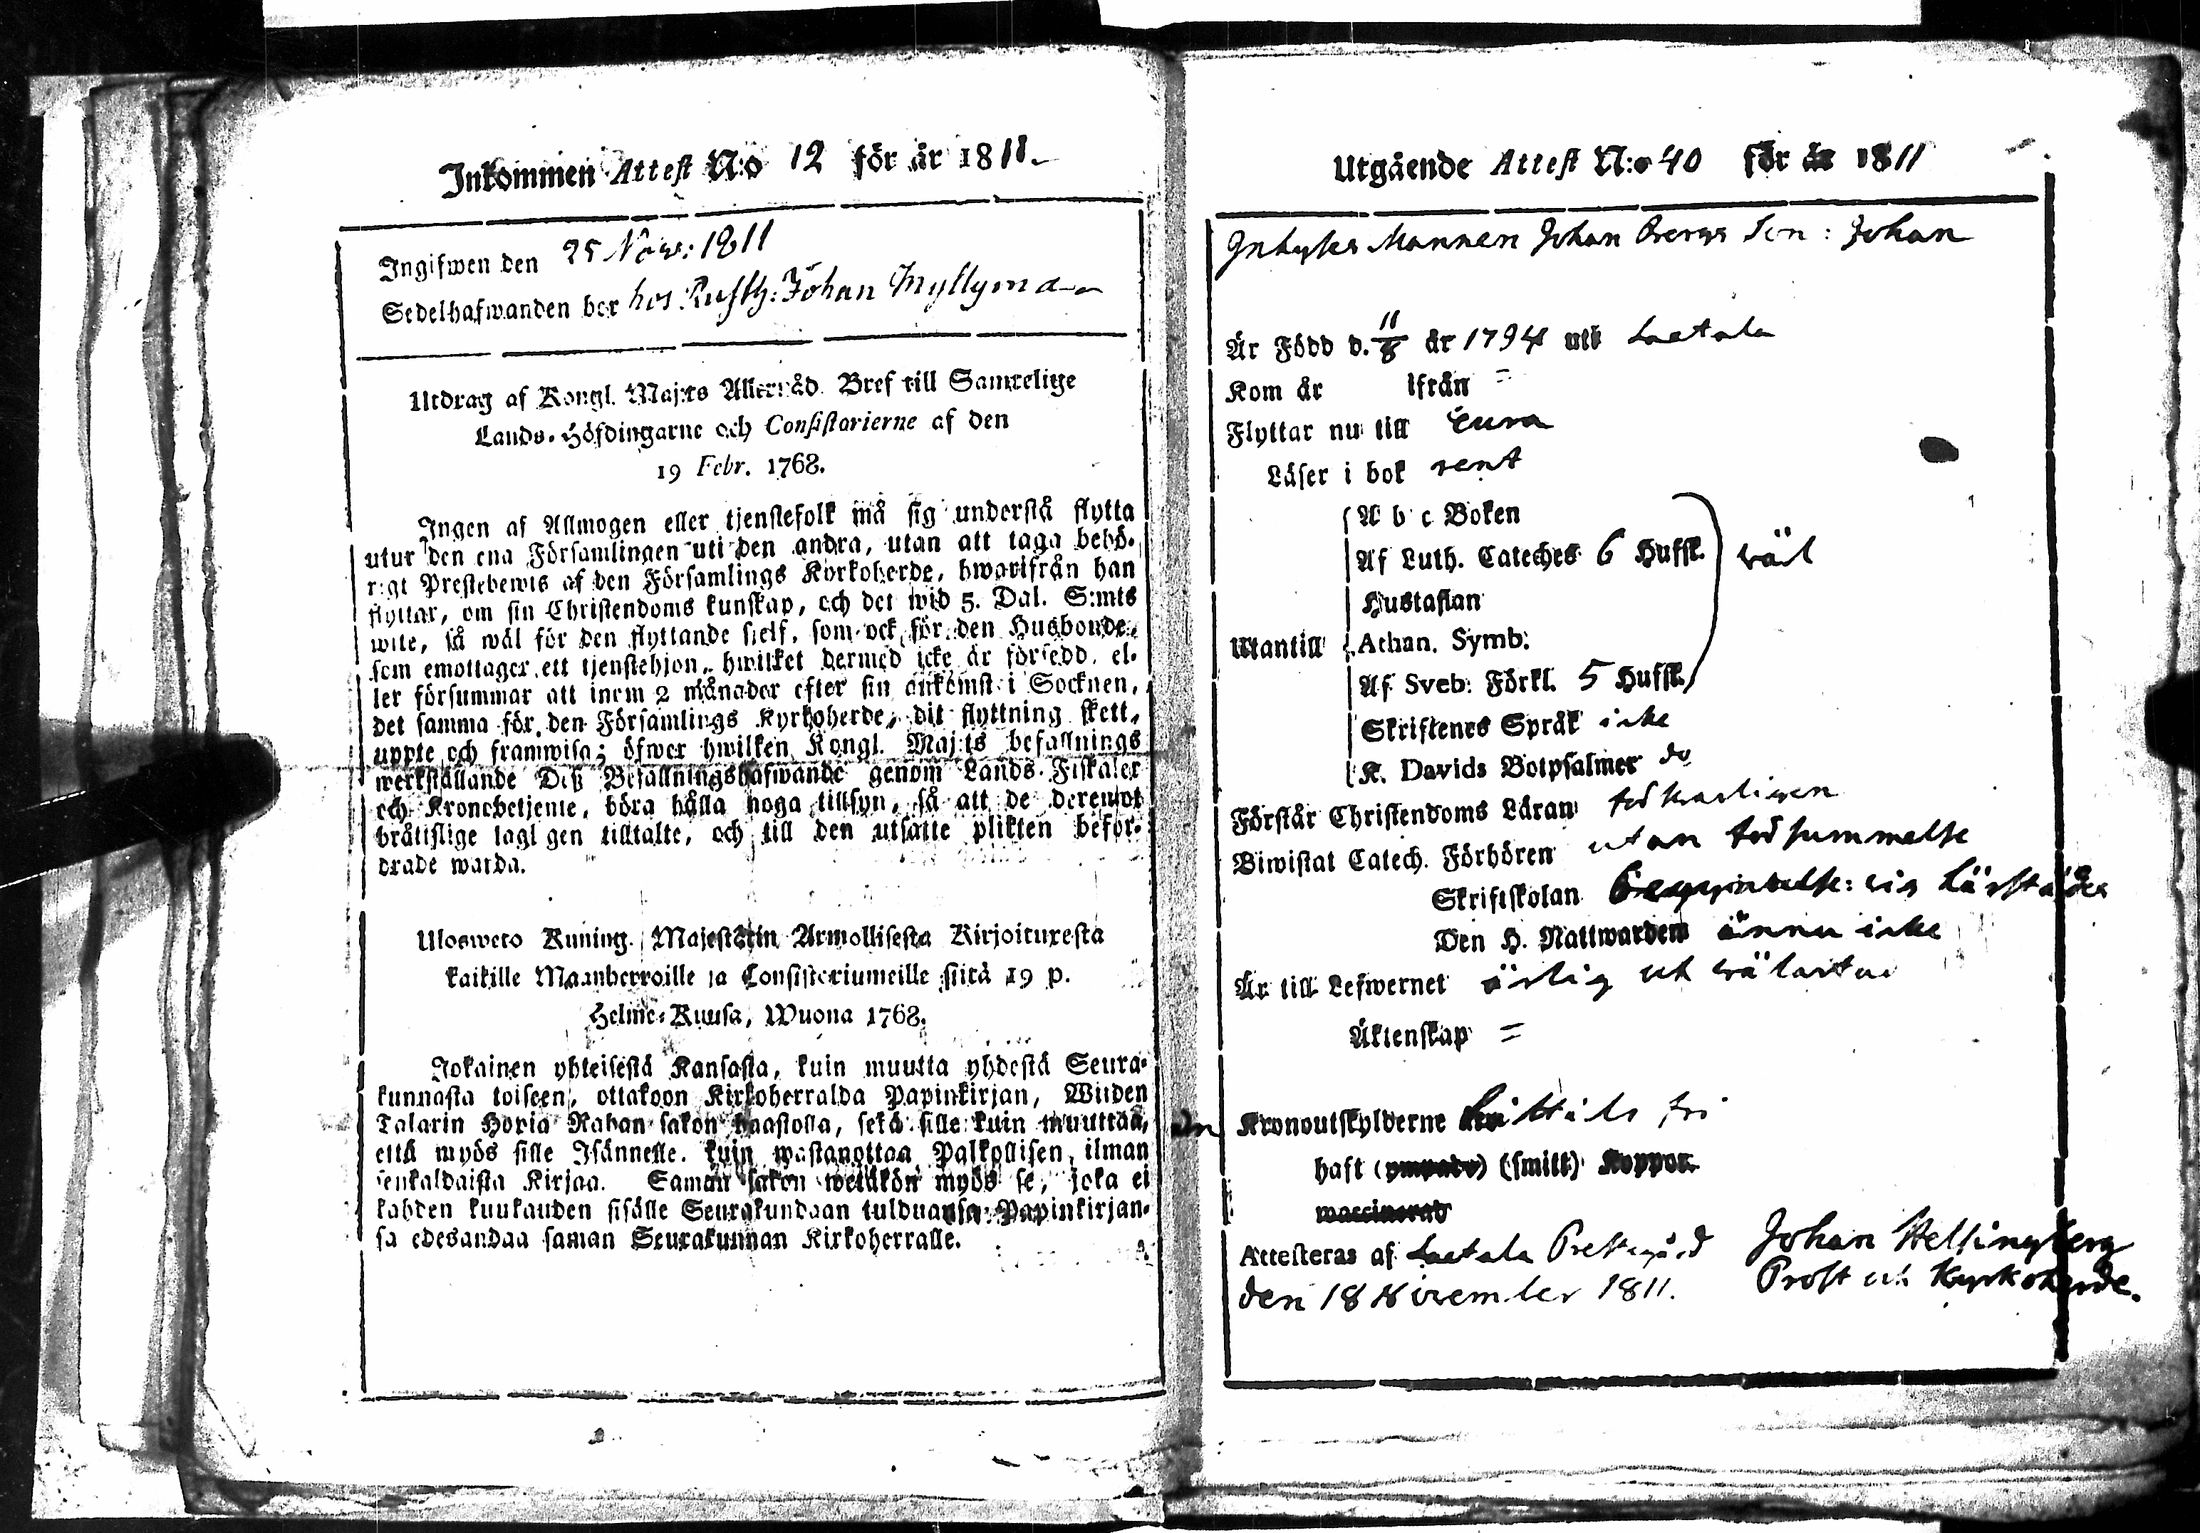 Inkommen Attest N:o 12 för år 1811.
Ingifwen den 25 Nov: 1811
Sedelhafwanden bor hos Rusth: Johan
Utdrag af Kongl. Maj:ts Allernåd. Bref till Samtelige
Lands-Höfdingarne och Consistorierne af den
19 Febr. 1768.
Ingen af Allmogen eller tjenstefolk må sig understå flytta
utur den ena Församlingen uti den andra, utan att taga behö-
rigt Prestebewis af den Församlings Kyrkoherde, hwarifrån han
flyttar, om sin Christendoms kunskap, och det wid 5. Dal. S:mts
wite, så wäl för den flyttande sjelf, som ock för den Husbonde,
som emottager ett tjenstehjon, hwilket dermed icke är försedd, el-
ler försummar att inom 2 månader efter sin ankomst i Socknen,
det samma för den Församlings Kyrkoherde, dit flyttning skett,
uppte och framwisa; öfwer hwilken Kongl. Maj:ts befallnings
werkställande Deß Befallningshafwande genom Lands-Fiskaler
och Kronobetjente, böra hålla noga tillsyn, så att de deremot
bråtislige lagl gen tilltalte, och till den utsatte plikten befor-
drade warda.
Ulosweto Kuning. Majestätin Armollisesta Kirjoituxesta
kaikille Maanherroille ja Consistoriumeille siitä 19 p.
Helme-Kuusa, Wuona 1768.
Jokainen yhteisestä Kansasta, kuin muutta yhdestä Seura-
kunnasta toiseen, ottakoon Kirkoherralda Papinkirjan, Wiiden
Talarin Hopia Rahan sakon haastolla, sekä sille kuin muuttaa,
että myös sille Isännelle, kuin wastanottaa Palkollisen ilman
senkaldaista Kirjaa. Saman sakon wetäkön myös se, joka ei
kahden kuukauden sisälle Seurakundaan tulduansa Papinkirjan-
sa edesandaa saman Seurakunnan Kirkoherralle.
Utgående Attest N:o 40 för år 1811
Inhyses Mannen Johan Bergs Son: Johan
Är Född d. 11/8 år 1794 uti Laetala
Kom år ifrån =
Flyttar nu till Eura
Läser i bok rent
A b c Boken
Af Luth. Cateches 6 Hufst. wäl
Hustaflan
Utantill Athan. Symb:
Af Sveb: Förkl. 5 Hufst.
Skriftenes Språk icke
K. Davids Botpsalmer do
Förstår Christendoms Läran försvarligen
Biwistat Catech. Förhören utan försummelse
Skriftskolan
Den H. Nattwarden ännu icke
Är till Lefwernet ärlig och wälartad
Äktenskap =
Kronoutskylderne hittils fri
haft (ympade) (smitt) Koppor.
waccinerad
Attesteras af Laetala Prestegård Johan Hellsingberg
den 18 November 1811. Prost och Kyrkoherde.